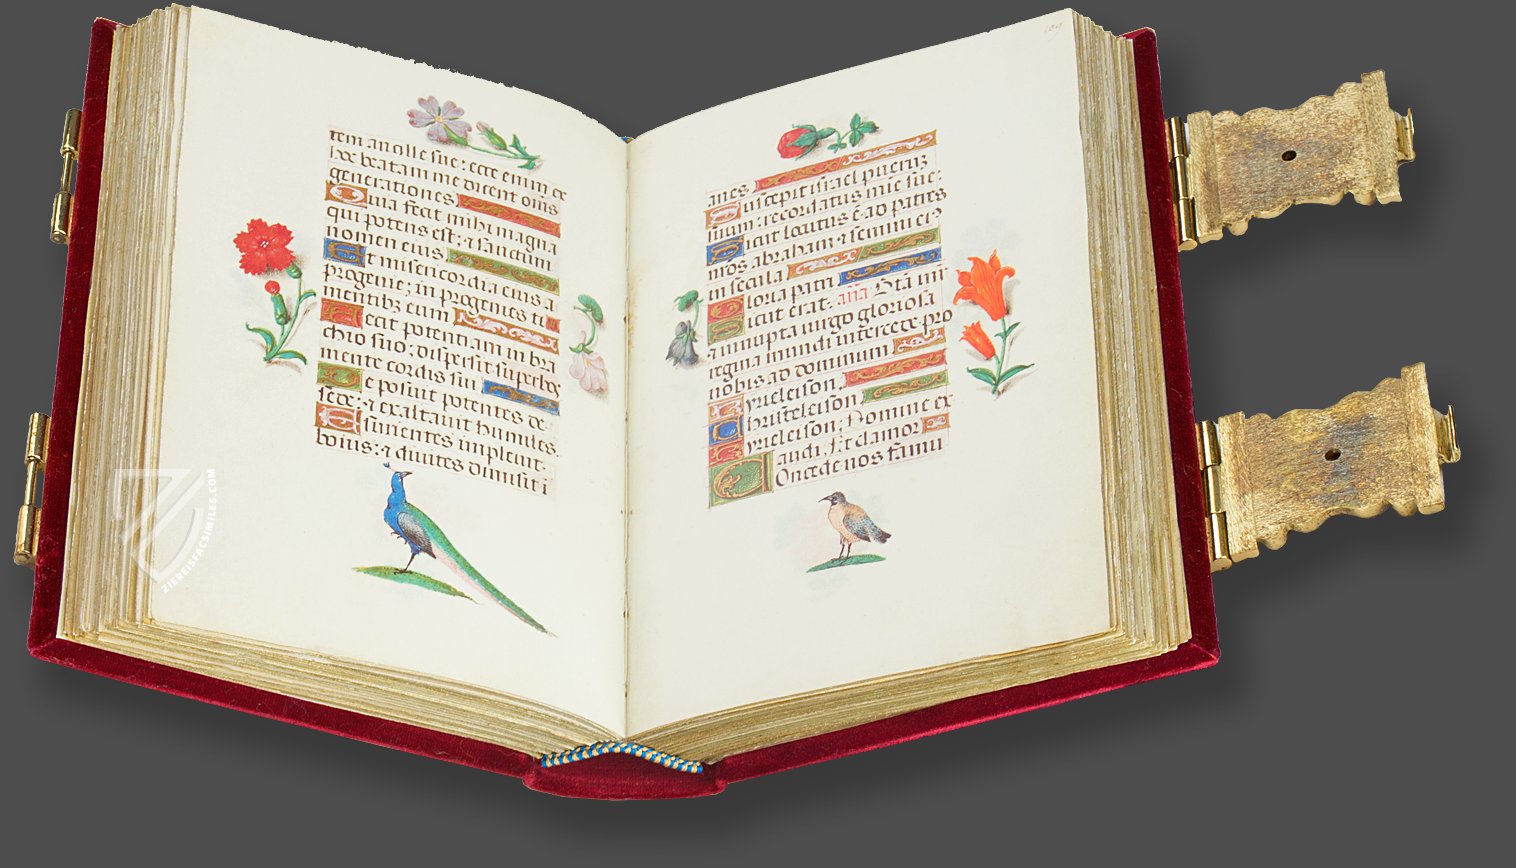 tem ancille sue: ecce enim ex
hoc beatam me dicent oms
generationes
Quia fecit mihi magna
qui potens est: ⁊ sanctum
nomen eius
Et misericordia eius a
progenie: in progenies ti
mentibꝫ eum
Fecit potentiam in bra
chio suo: dispersit superbos
mente cordis sui
Deposuit potentes de
sede: ⁊ exaltauit humiles
Esurientes impleuit
bonis: ⁊ diuites dimisit i
anes
Suscepit israel pueruꝫ
suum: recordatus mie sue:
Sicut locutus ē ad patres
nros abraham ⁊ semini eiꝰ
in secula
Gloria patri
Sicut erat. aña Sctā m̄
a innupta uirgo gloriosa
regina mundi intercede pro
nobis ad dominum
Kyrieleison
Christeleison
Kyrieleison: Domine ex
audi. Et clamor
COncede nos famu
109
ZIEREISFACSIMILES.COM